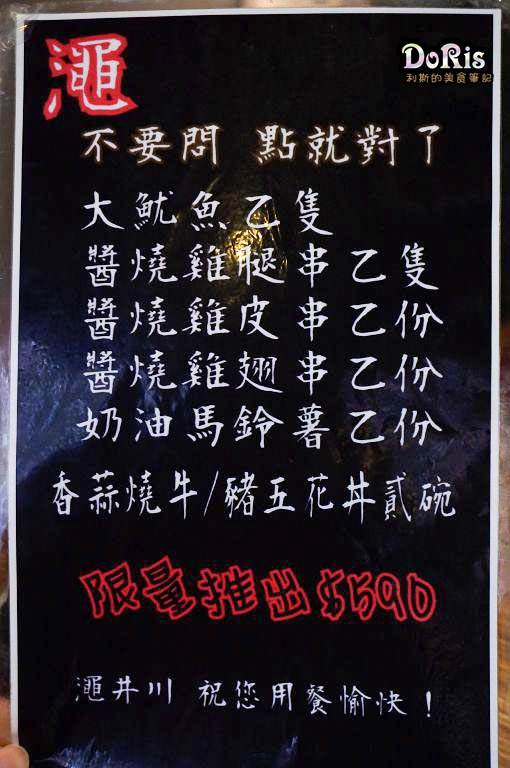 澠
DoRis
利斯的美食筆記
不要問 點就對了
大魷魚乙隻
醬燒雞腿串乙隻
醬燒雞皮串乙份
醬燒雞翅串乙份
奶油馬鈴薯乙份
香蒜燒牛/豬五花丼貳碗
限量推出$590
澠井川 祝您用餐愉快！